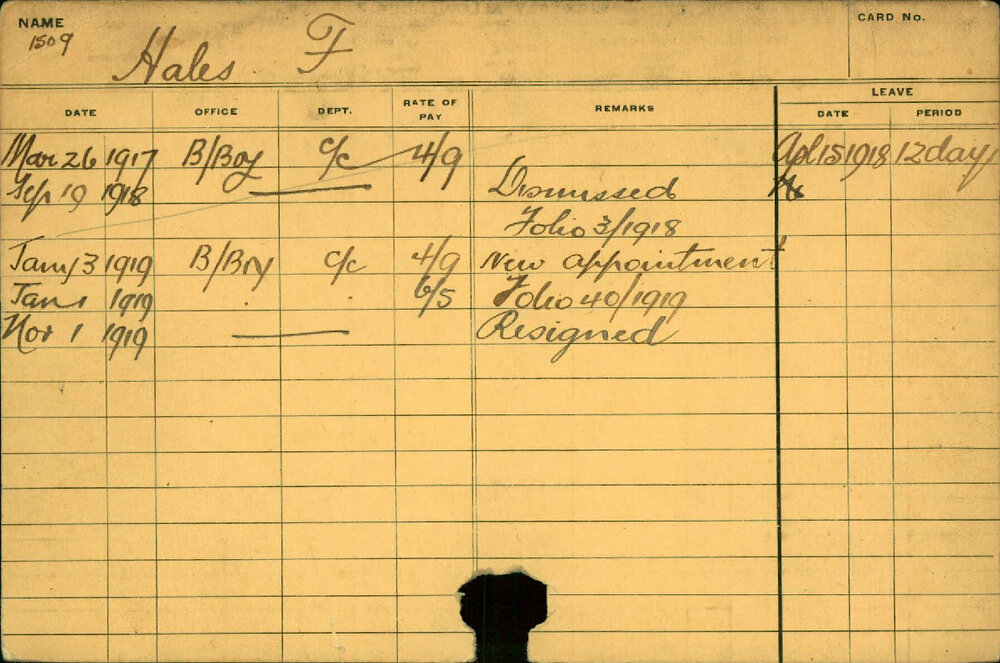 NAME CARD No.
1509
Hales F
LEAVE
DATE OFFICE DEPT. RATE OF PAY REMARKS DATE PERIOD
Mar 26 1917 B/Boy c/c 4/9 Apl 15 1918 12 days
Sep 19 1918 Dismissed
Folio 3/1918
Jany 3 1919 B/Boy c/c 4/9 New appointment
Jan 1 1919 6/5 Folio 40/1919
Nov 1 1919 Resigned